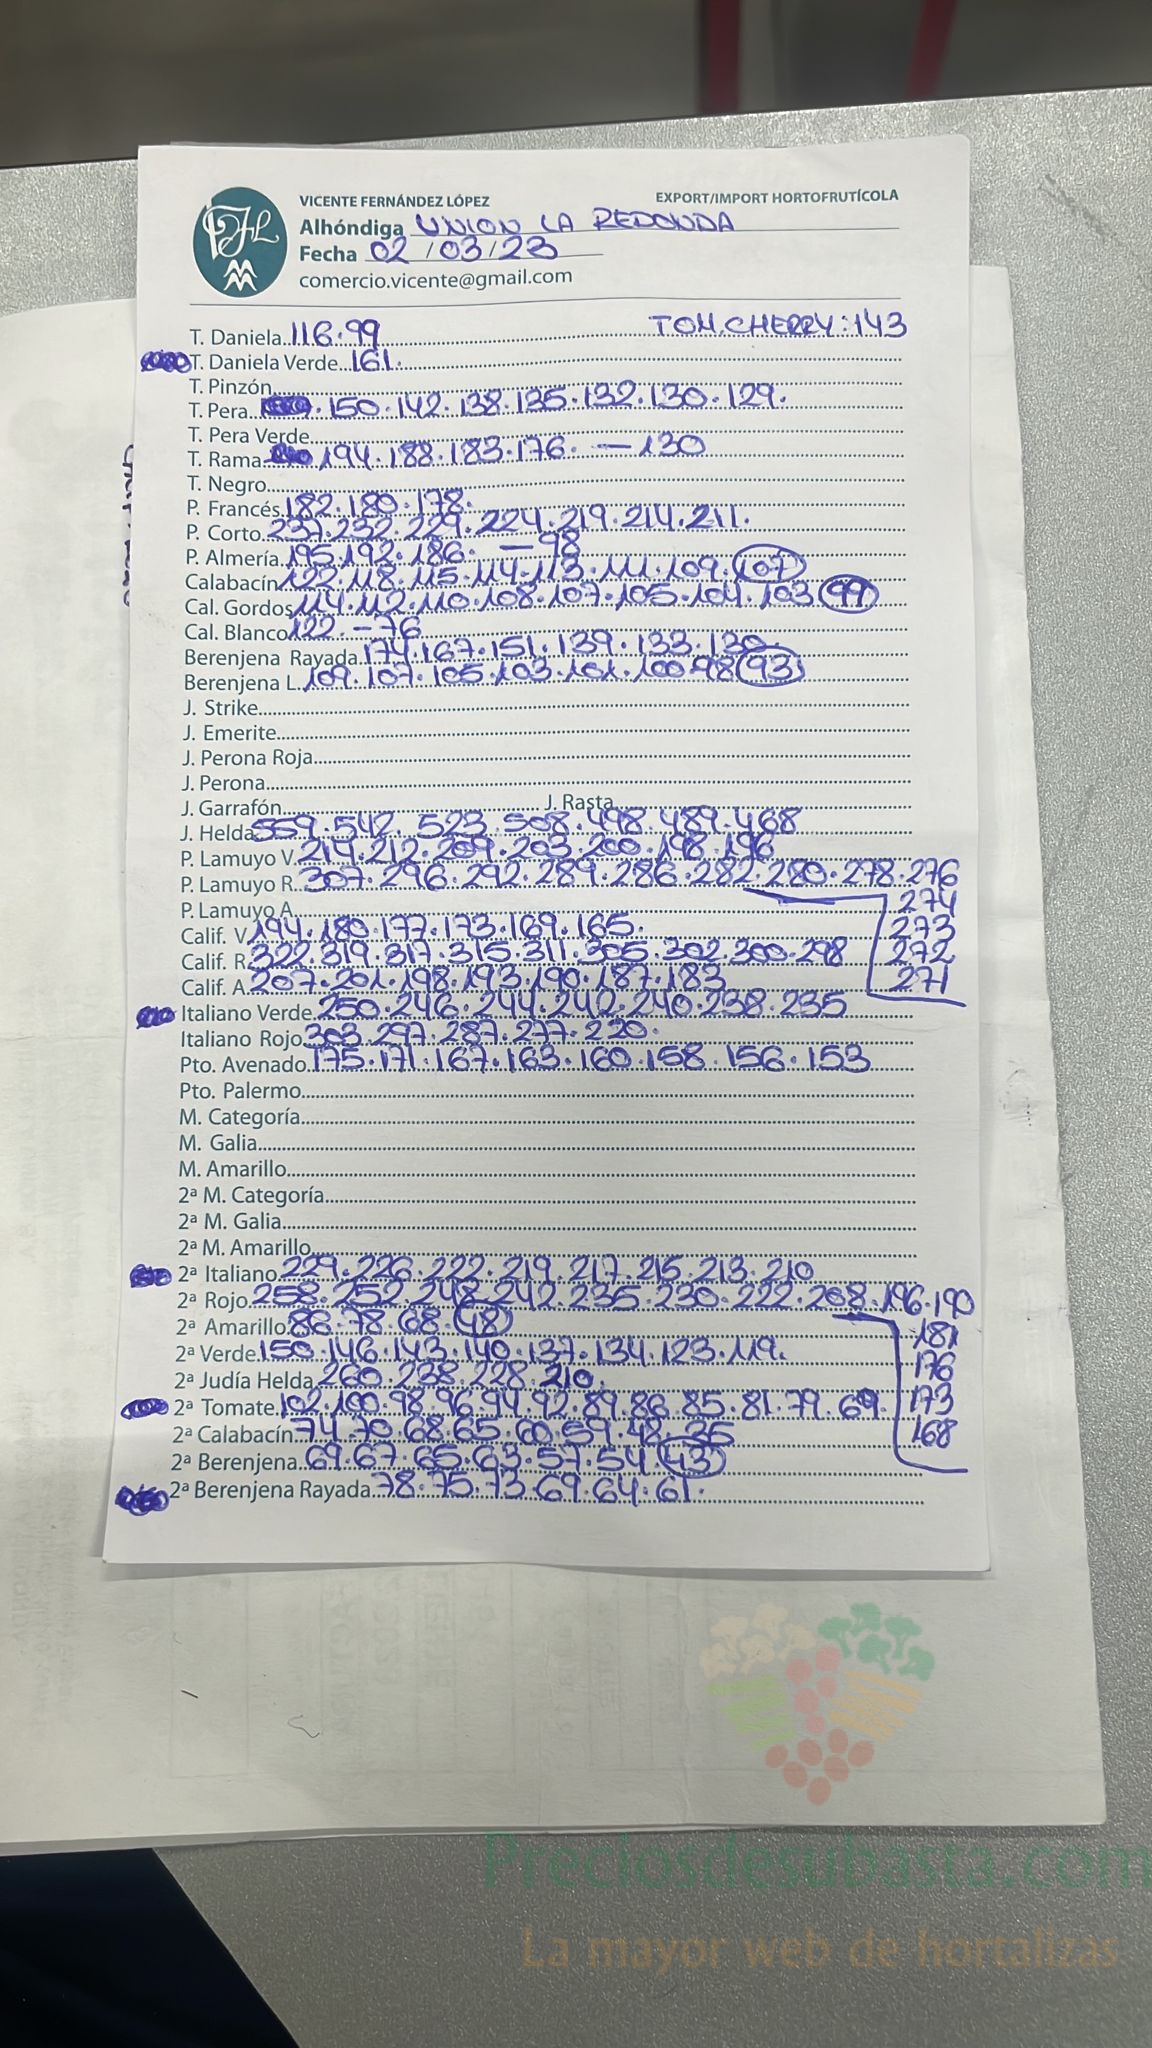 VICENTE FERNÁNDEZ LÓPEZ EXPORT/IMPORT HORTOFRUTÍCOLA
Alhóndiga UNION LA REDONDA
Fecha 02/03/23
comercio.vicente@gmail.com
T. Daniela 116.99 TOM.CHERRY:143
T. Daniela Verde 161.
T. Pinzón
T. Pera 150.142.138.135.132.130.129.
T. Pera Verde
T. Rama 194.188.183.176. — 130
T. Negro
P. Francés 182.180.178.
P. Corto 237.232.229.224.219.214.211.
P. Almería 195.192.186. — 98
Calabacín 122.118.115.114.113.111.109.107
Cal. Gordos 114.112.110.108.107.105.104.103 99
Cal. Blanco 122.-76
Berenjena Rayada 174.167.151.139.133.130.
Berenjena L. 109.107.105.103.101.100.98 93
J. Strike
J. Emerite
J. Perona Roja
J. Perona
J. Garrafón J. Rasta
J. Helda 559.542.523.508.498.489.468
P. Lamuyo V. 214.212.209.203.200.198.196
P. Lamuyo R. 307.296.292.289.286.282.280.278.276
274
P. Lamuyo A.
273
Calif. V. 194.180.177.173.169.165.
272
Calif. R. 322.319.317.315.311.305.302.300.298
271
Calif. A. 207.201.198.193.190.187.183
Italiano Verde 250.246.244.242.240.238.235
Italiano Rojo 303.297.287.277.220.
Pto. Avenado 175.171.167.163.160.158.156.153
Pto. Palermo
M. Categoría
M. Galia
M. Amarillo
2ª M. Categoría
2ª M. Galia
2ª M. Amarillo
2ª Italiano 229.226.222.219.217.215.213.210
2ª Rojo 258.252.248.242.235.230.222.208.196.190
181
2ª Amarillo 86.78.68.48
176
2ª Verde 150.146.143.140.137.134.123.119.
173
2ª Judía Helda 260.238.228.210.
168
2ª Tomate 102.100.98.96.94.92.89.86.85.81.79.69.
2ª Calabacín 74.70.68.65.60.59.48.35
2ª Berenjena 69.67.65.63.57.54.43
2ª Berenjena Rayada 78.75.73.69.64.61.
Preciosdesubasta.com
La mayor web de hortalizas